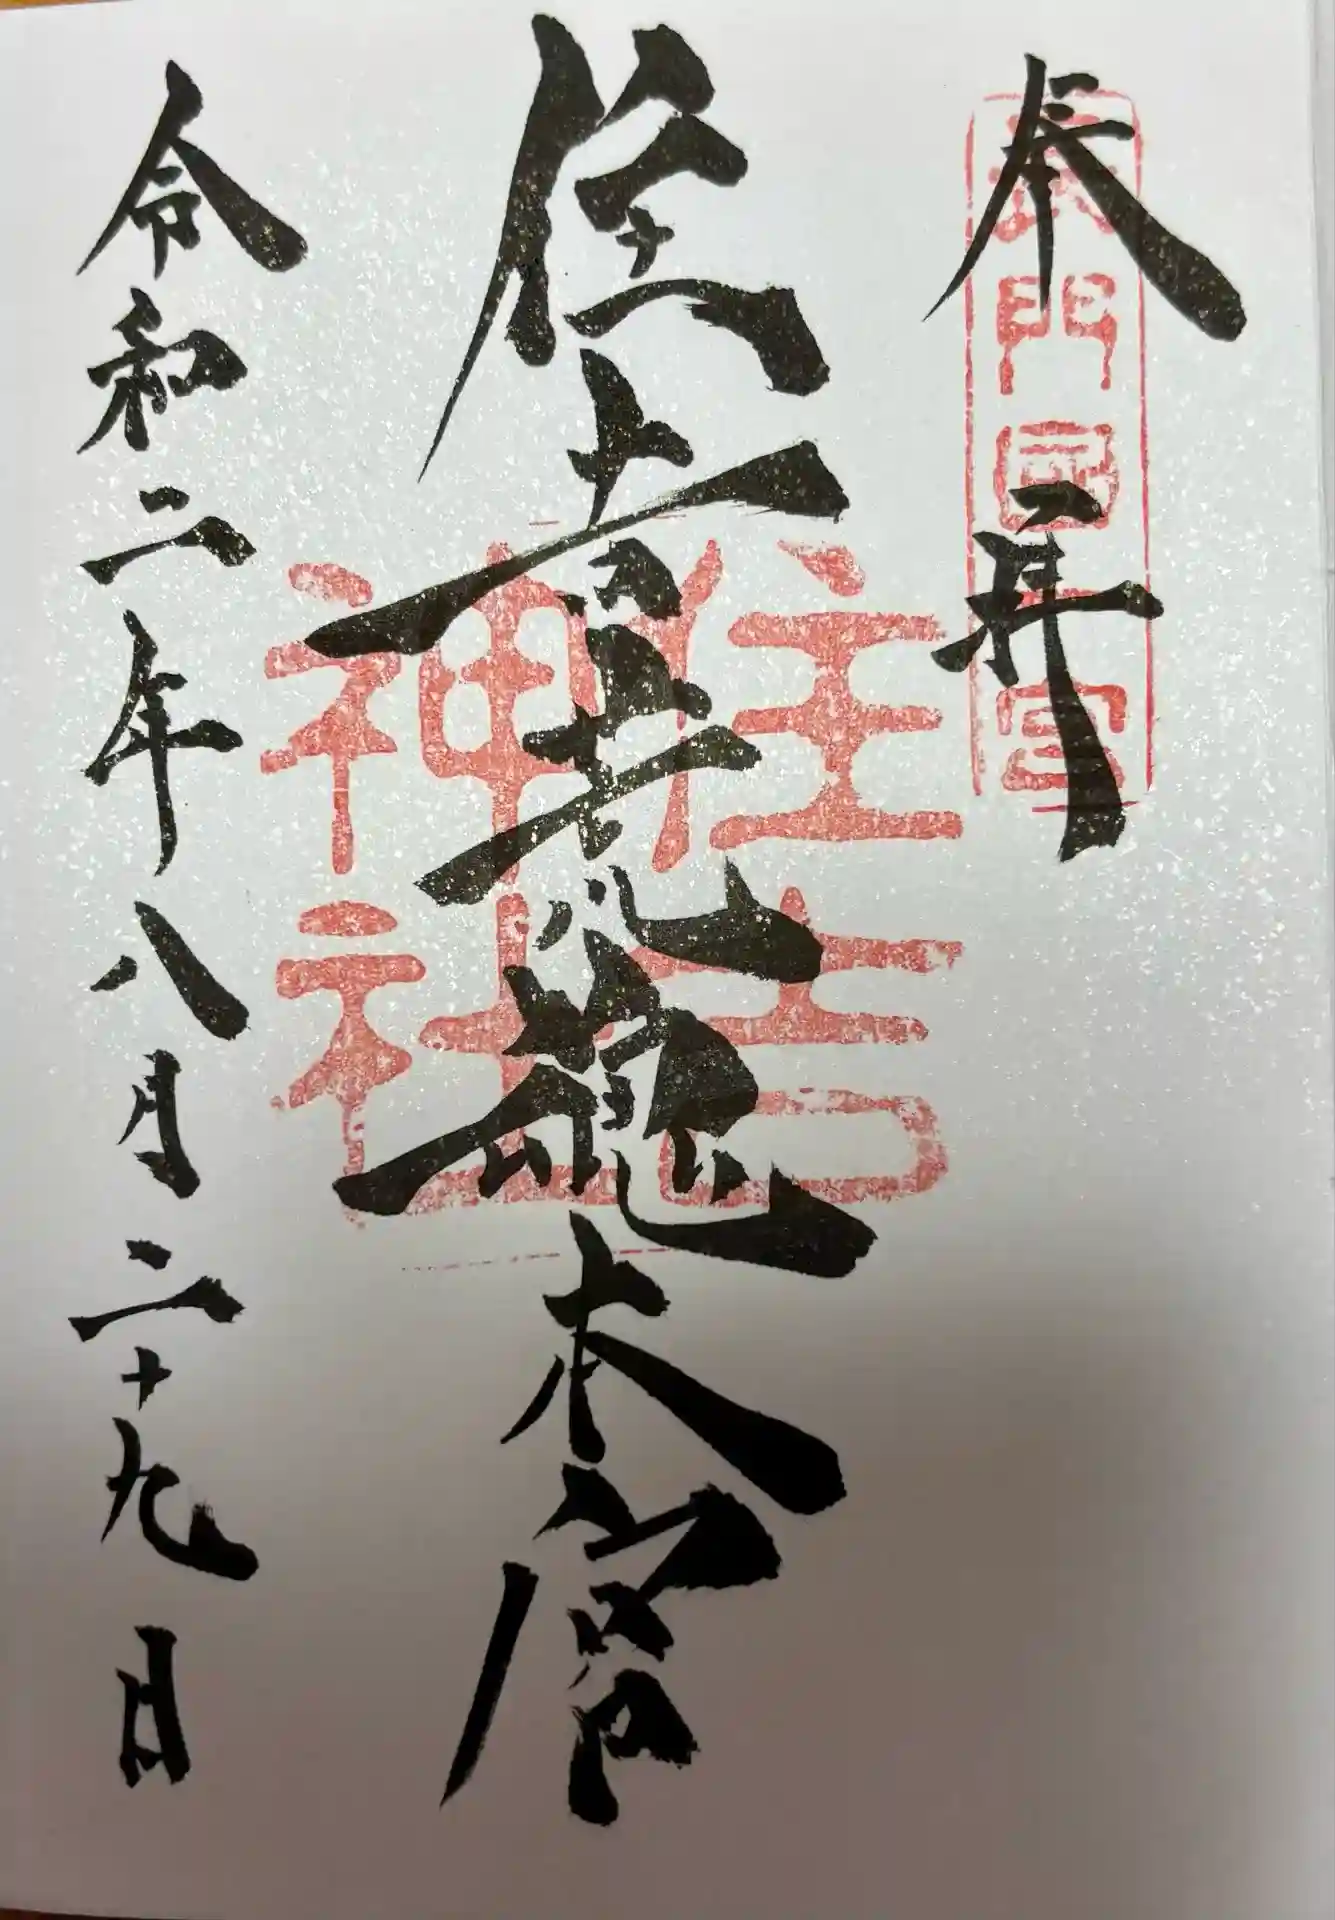 奉拝
長門國一宮
住吉荒魂本宮
住吉神社
令和二年八月二十九日